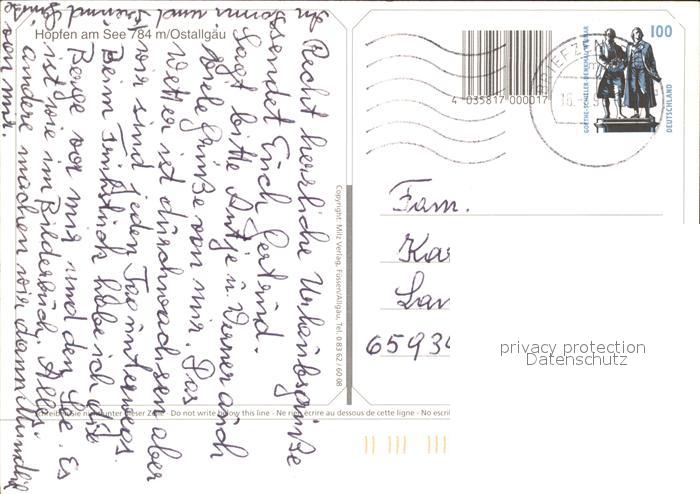 Hopfen am See 784 m/Ostallgäu
Recht herzliche Urlaubsgrüße
sendet Euch Gertrud.
Sagt bitte Antje u. Werner auch
viele Grüße von mir. Das
Wetter ist durchwachsen aber
wir sind jeden Tag unterwegs.
Beim Frühstück habe ich die
Berge vor mir und den See. Es
ist wie im Bilderbuch. Alles
andere machen wir dann mündlich
von mir.
Copyright: Milz Verlag, Füssen/Allgäu, Tel. 0 83 62 / 60 08
Schreiben Sie nicht unter dieser Zeile - Do not write below this line - Ne rien écrire au dessous de cette ligne - No escri
4 035817 000017
BRIEFZ
GOETHE-SCHILLER-DENKMAL WEIMAR
100
DEUTSCHLAND
Fam.
Ka
Lan
6593
privacy protection
Datenschutz